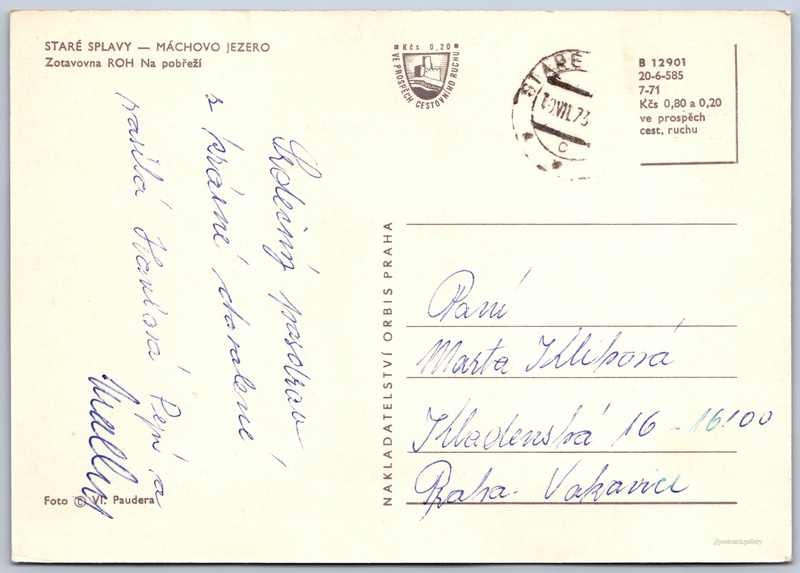 STARÉ SPLAVY — MÁCHOVO JEZERO
Zotavovna ROH Na pobřeží
Srdečný pozdrav
s krásné dovolené
posílá Pepi a
Foto © Vl. Paudera
NAKLADATELSTVÍ ORBIS PRAHA
Kčs 0,20
VE PROSPĚCH CESTOVNÍHO RUCHU
STARÉ
VII.73
c
B 12901
20-6-585
7-71
Kčs 0,80 a 0,20
ve prospěch
cest. ruchu
Paní
Marta Kliková
Kladenská 16 - 16100
Praha - Vokovice